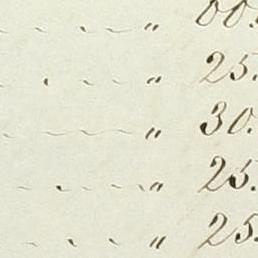 " 00.
" 25.
" 30.
" 25.
" 25.